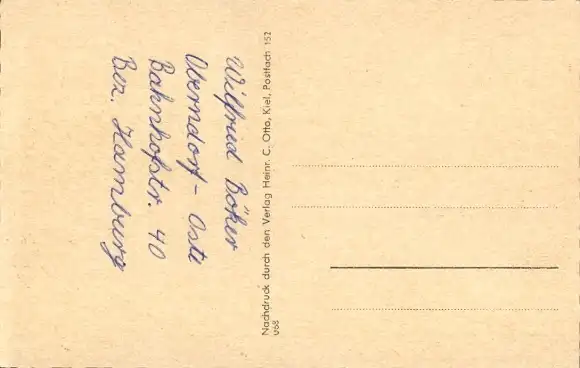 Wilfried Böker
Oberndorf-Oste
Bahnhofstr. 40
Bez. Hamburg
Nachdruck durch den Verlag Heinr. C. Otto, Kiel, Postfach 152
U68